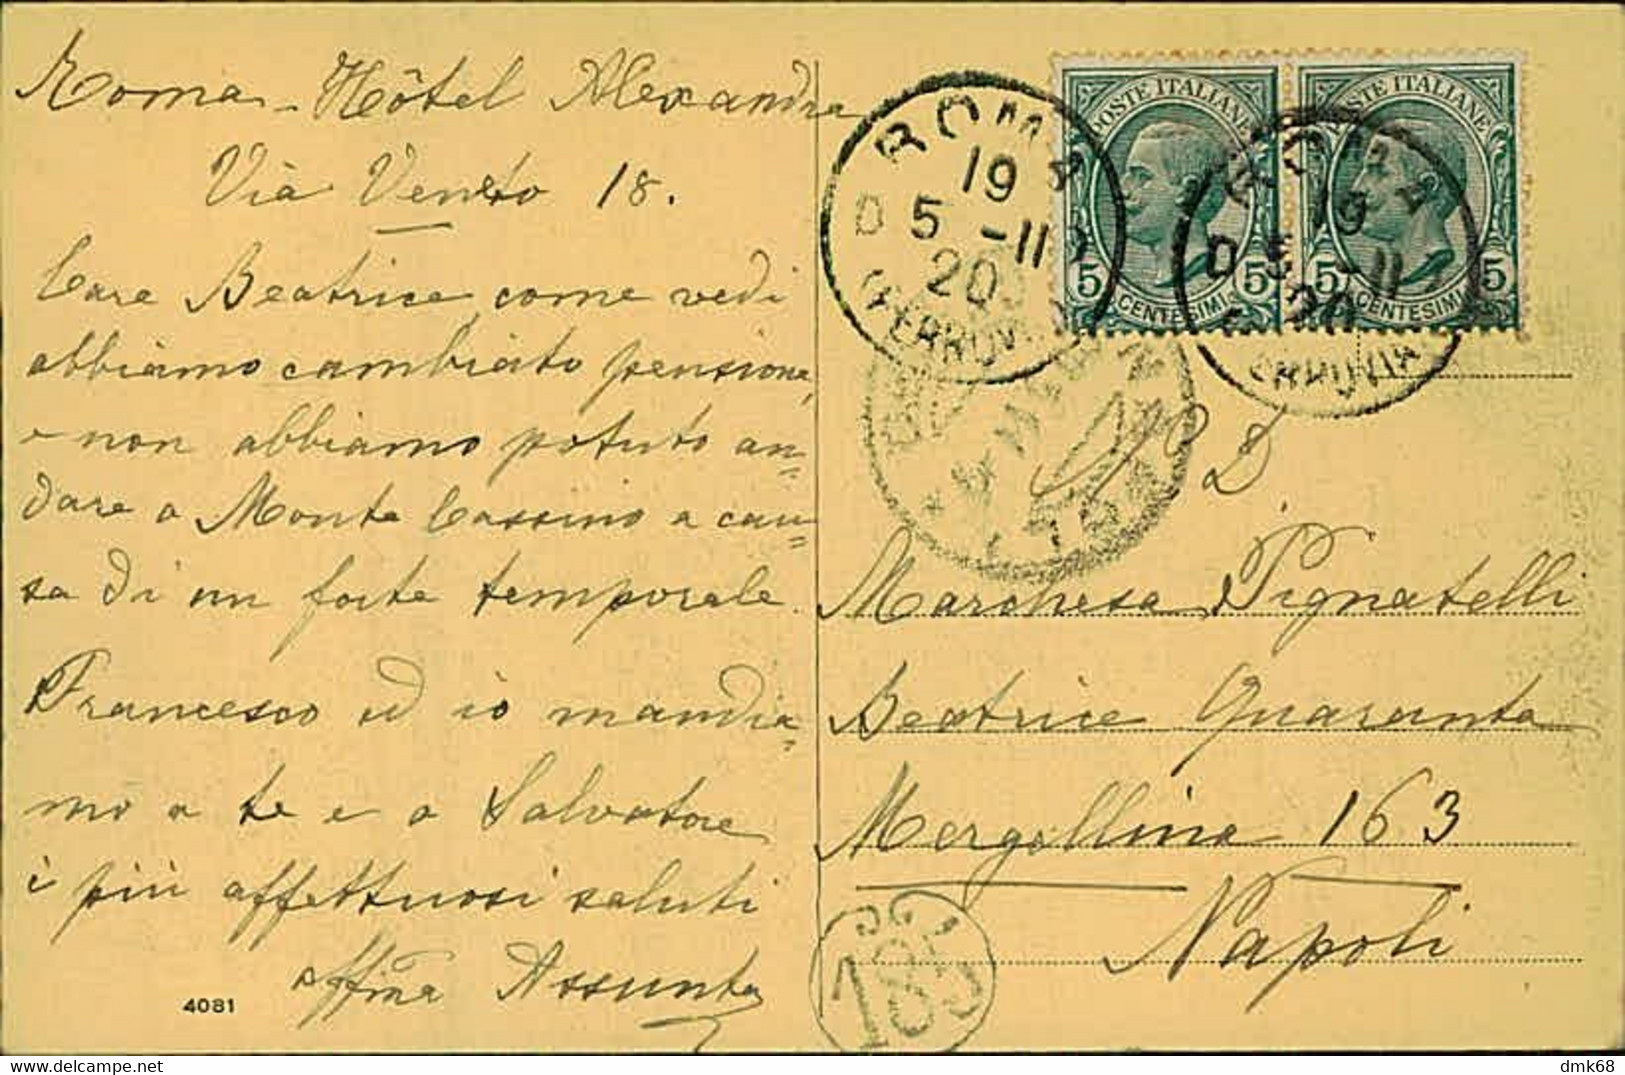 Roma - Hôtel Alexandra
Via Veneto 18.
Care Beatrice come vedi
abbiamo cambiato pensione,
e non abbiamo potuto an=
dare a Monte Cassino a cau=
sa di un forte temporale.
Francesco ed io mandia=
mo a te e a Salvatore
i più affettuosi saluti
affma Assunta
4081
POSTE ITALIANE
5 CENTESIMI 5
POSTE ITALIANE
5 CENTESIMI 5
ROMA
19
D 5 -11
20
(FERROVIA)
ROMA
19
D 5 -11
20
FERROVIA
N. D.
Marchesa Pignatelli
Beatrice Quaranta
Mergellina 163
Napoli
dmk68